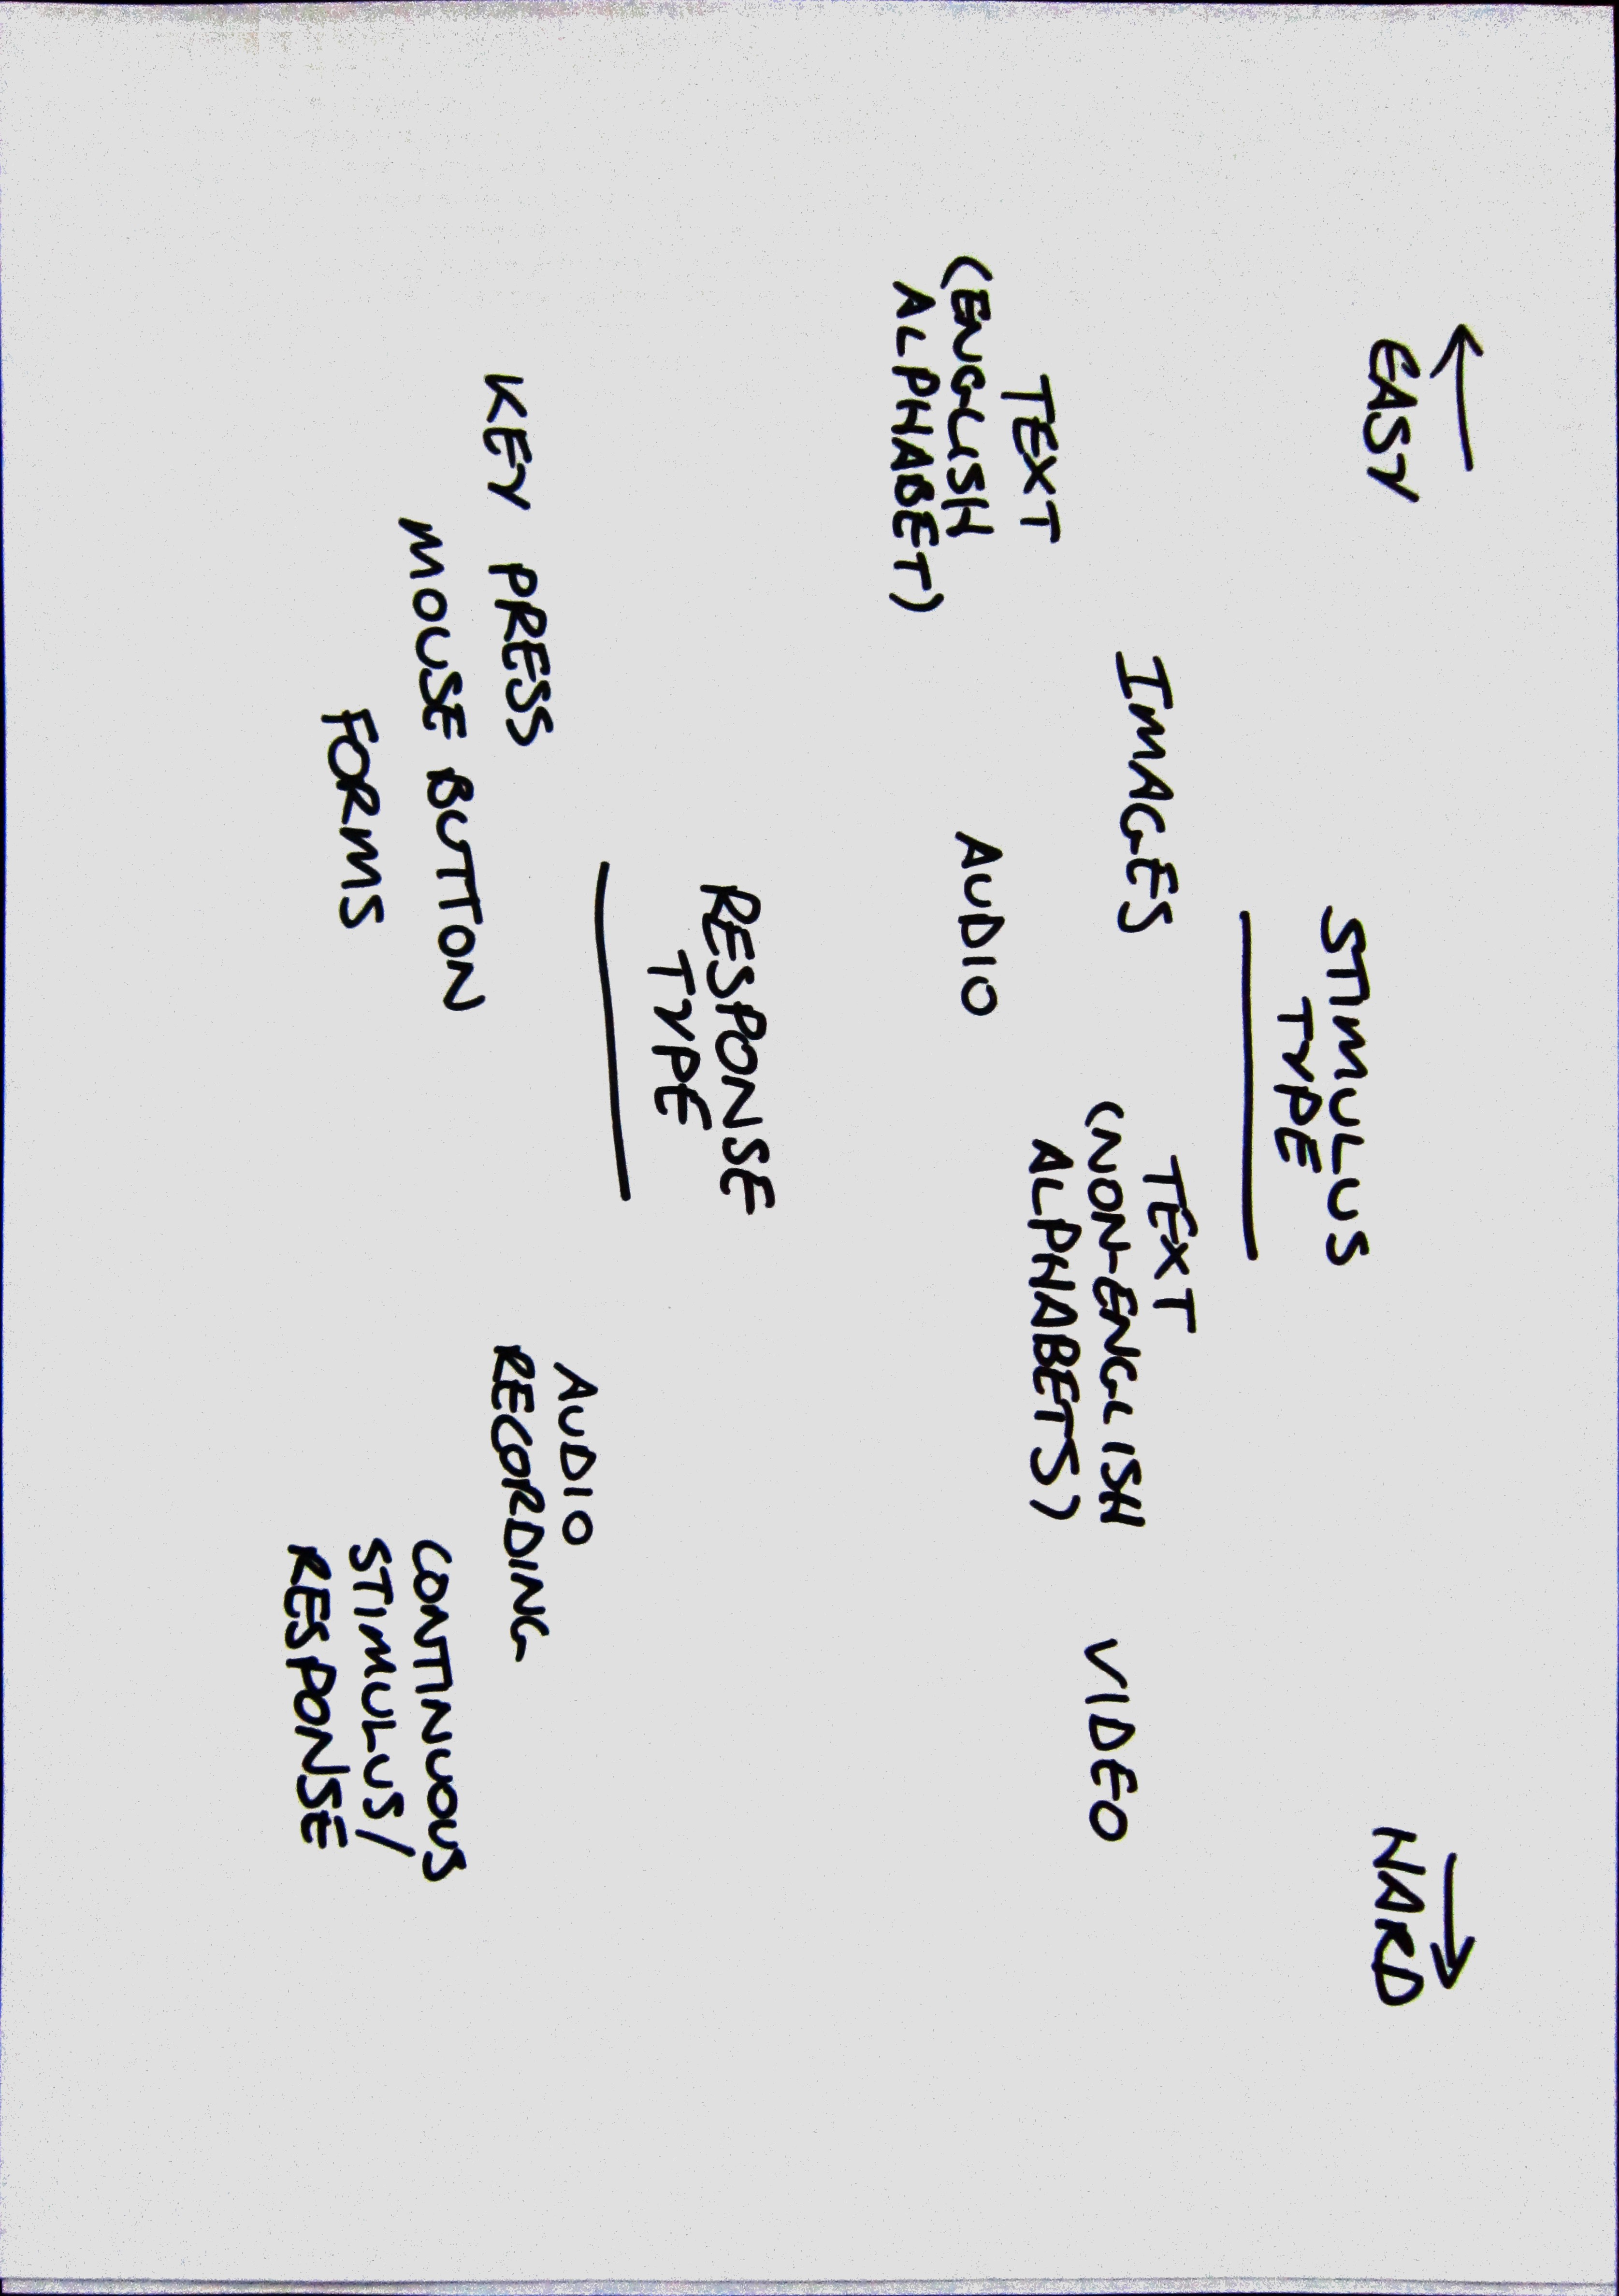 ← EASY
HARD →
STIMULUS
TYPE
IMAGES
TEXT
(NON-ENGLISH
ALPHABETS)
VIDEO
TEXT
(ENGLISH
ALPHABET)
AUDIO
RESPONSE
TYPE
KEY PRESS
MOUSE BUTTON
FORMS
AUDIO
RECORDING
CONTINUOUS
STIMULUS/
RESPONSE